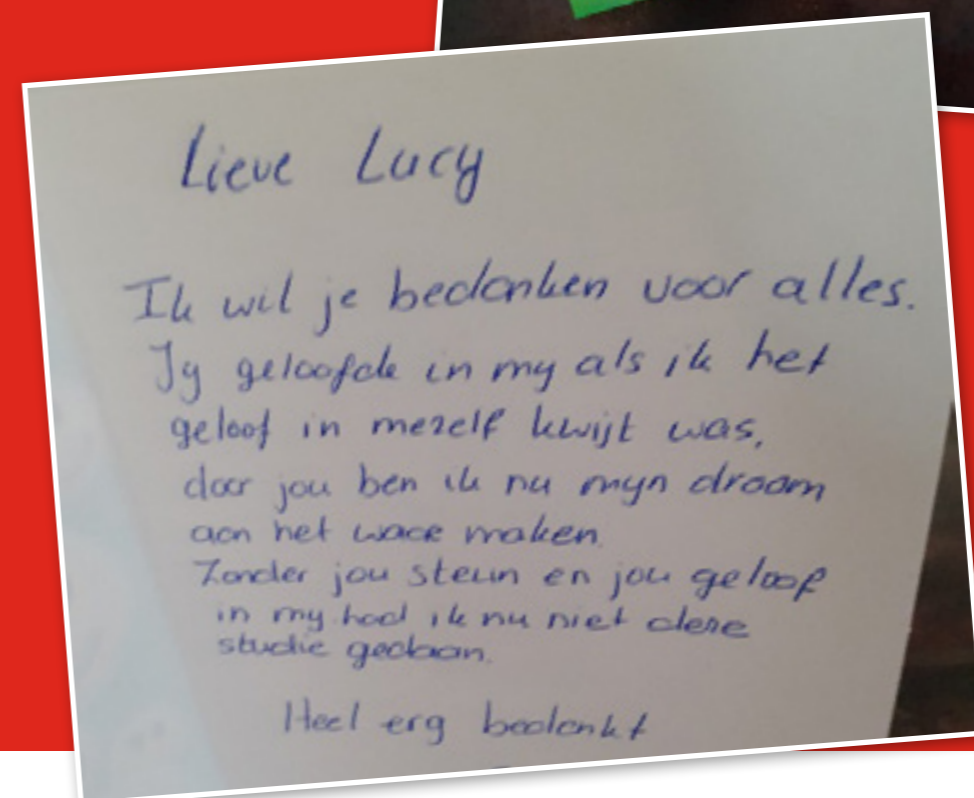 Lieve Lucy
Ik wil je bedanken voor alles.
Jy geloofde in my als ik het
geloof in mezelf kwijt was,
door jou ben ik nu myn droom
aan het waar maken.
Zonder jou steun en jou geloof
in my had ik nu niet deze
studie gedaan.
Heel erg bedankt